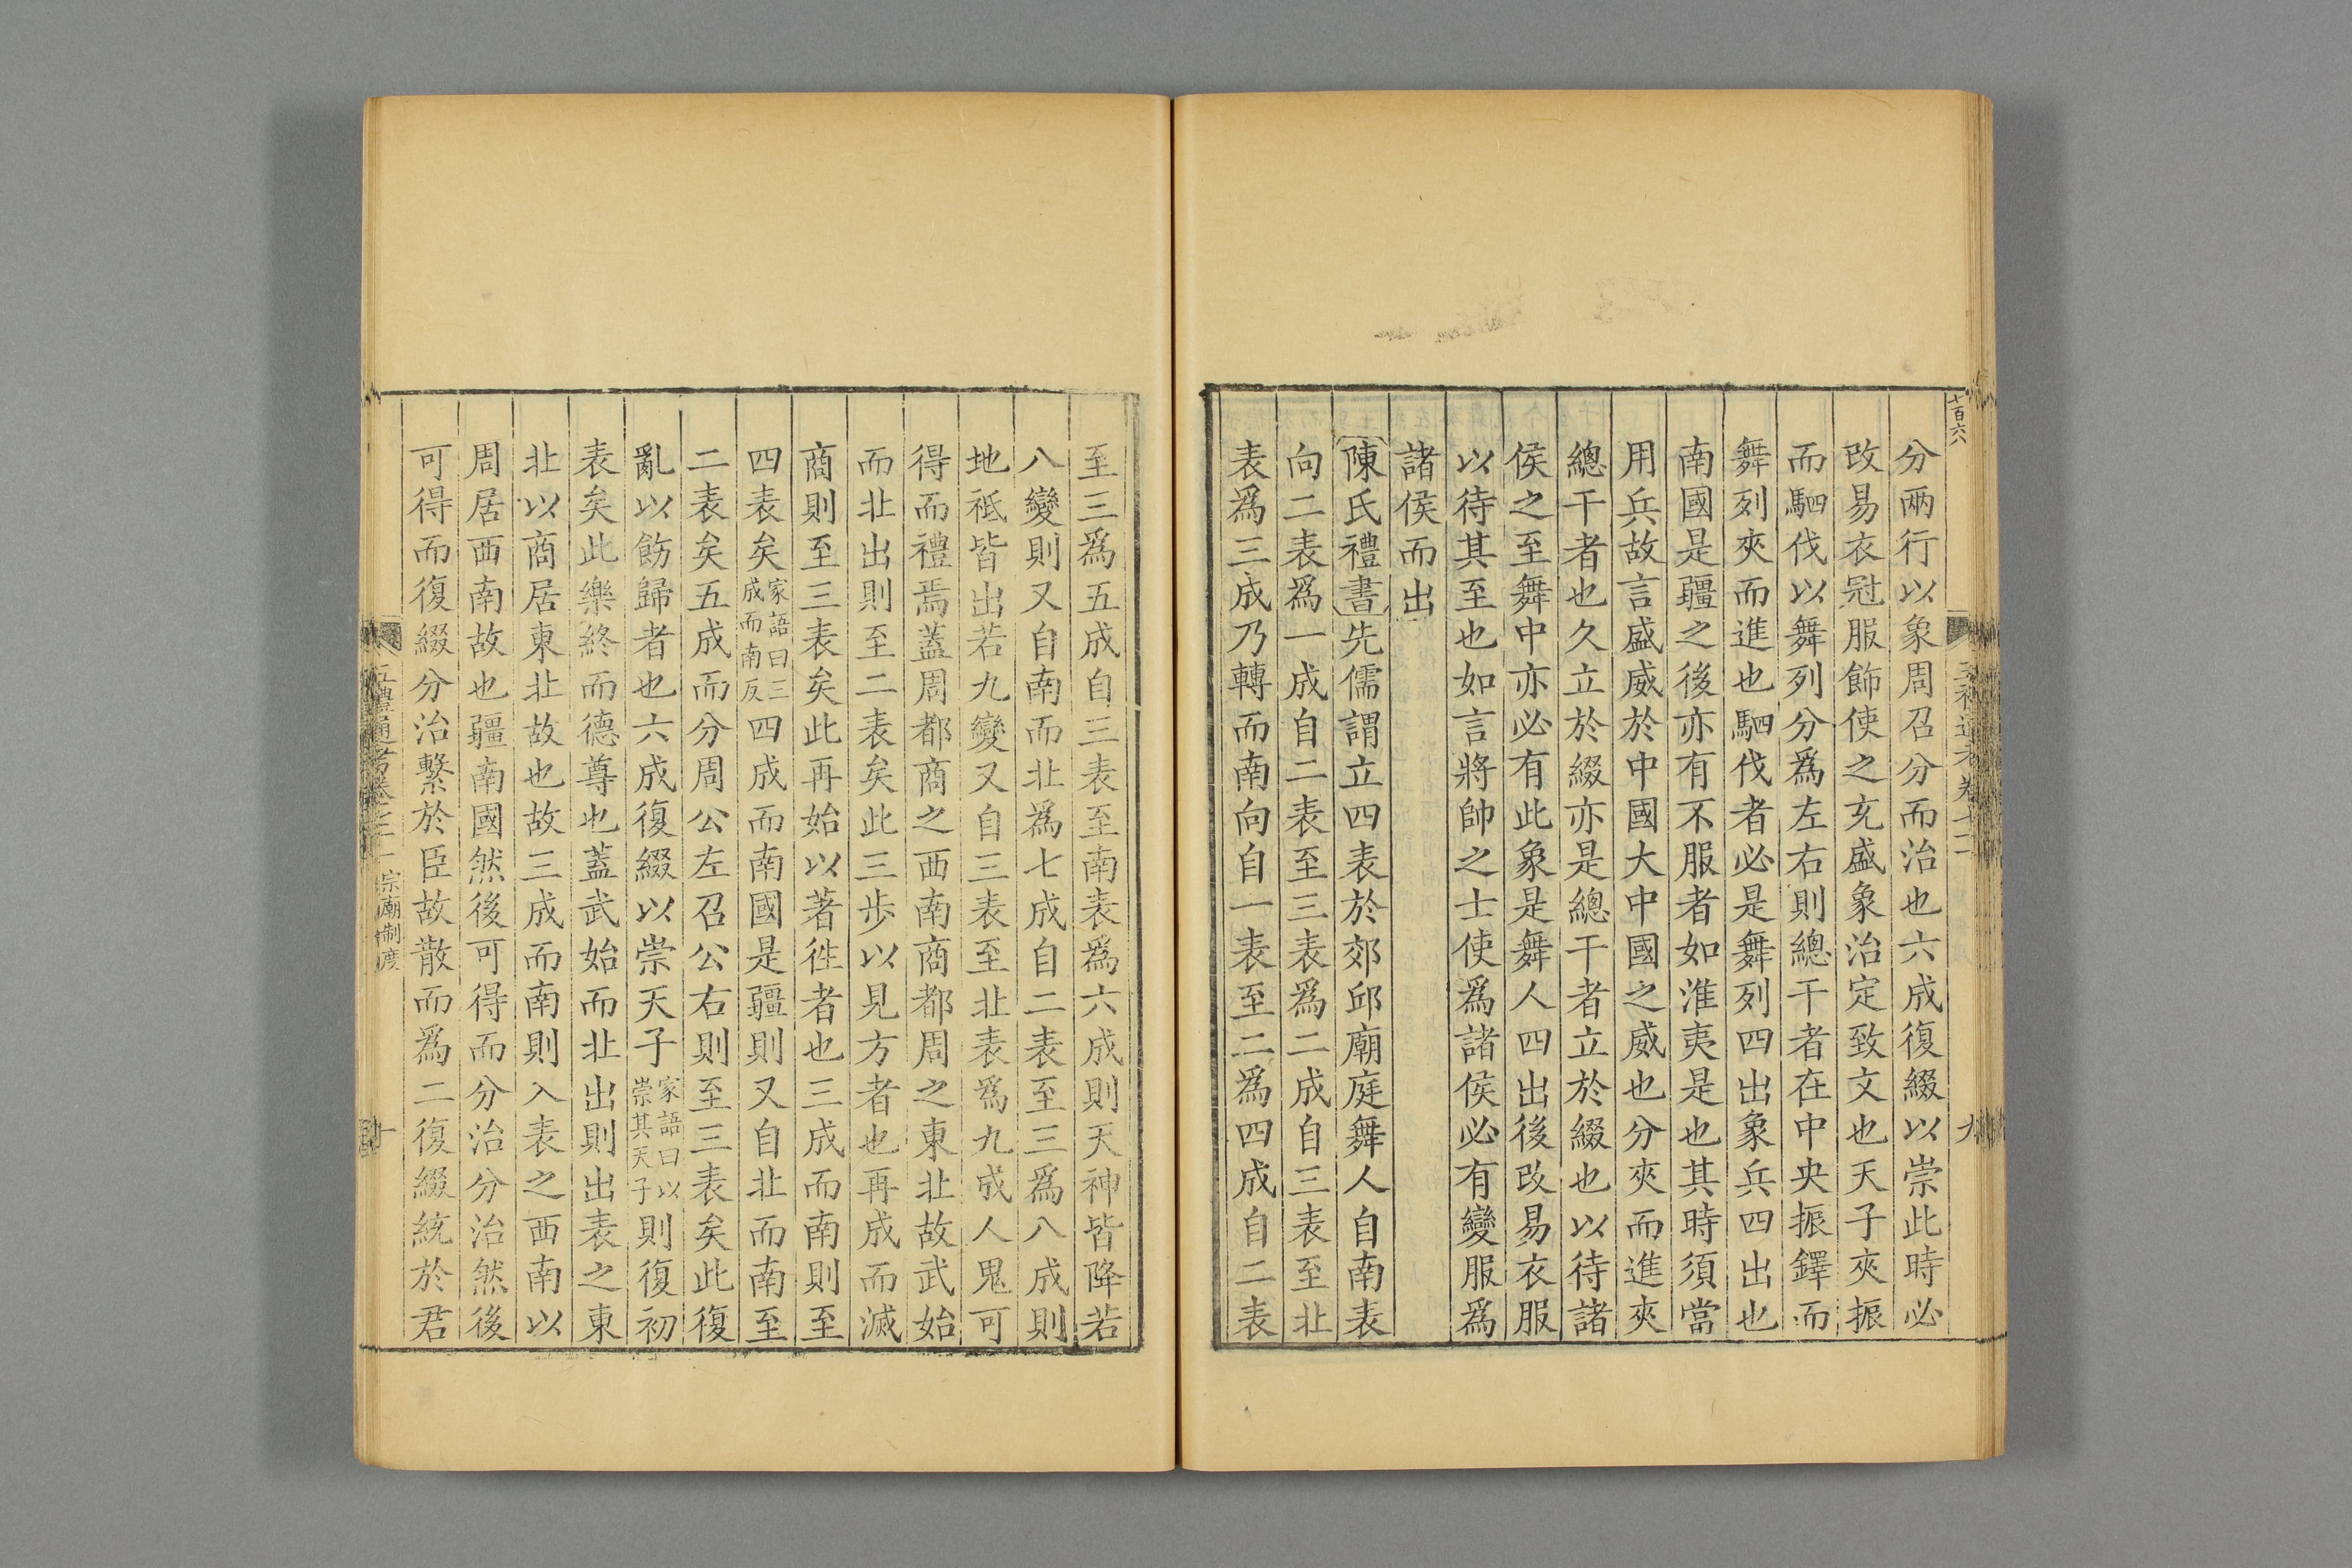 分兩行以象周召分而治也六成復綴以崇此時必
改易衣冠服飾使之充盛象治定致文也天子夾振
而駟伐以舞列分爲左右則總干者在中央振鐸而
舞列夾而進也駟伐者必是舞列四出象兵四出也
南國是疆之後亦有不服者如淮夷是也其時須當
用兵故言盛威於中國大中國之威也分夾而進夾
總干者也久立於綴亦是總干者立於綴也以待諸
侯之至舞中亦必有此象是舞人四出後改易衣服
以待其至也如言將帥之士使爲諸侯必有變服爲
諸侯而出
陳氏禮書先儒謂立四表於郊邱廟庭舞人自南表
向二表爲一成自二表至三表爲二成自三表至北
表爲三成乃轉而南向自一表至二爲四成自二表
至三爲五成自三表至南表爲六成則天神皆降若
八變則又自南而北爲七成自二表至三爲八成則
地祗皆出若九變又自三表至北表爲九成人鬼可
得而禮焉蓋周都商之西南商都周之東北故武始
而北出則至二表矣此三步以見方者也再成而滅
商則至三表矣此再始以著徃者也三成而南則至
四表矣家語曰三成而南反四成而南國是疆則又自北而南至
二表矣五成而分周公左召公右則至三表矣此復
亂以飭歸者也六成復綴以崇天子家語曰以崇其天子則復初
表矣此樂終而德尊也蓋武始而北出則出表之東
北以商居東北故也故三成而南則入表之西南以
周居西南故也疆南國然後可得而分治分治然後
可得而復綴分治繫於臣故散而爲二復綴統於君
五禮通考卷 宗廟制度
十